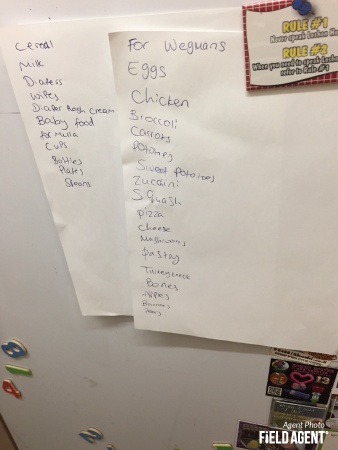 Cereal
Milk
Diapers
Wipes
Diaper Rash Cream
Baby food
for Milla
Cups
Bottles
Plates
For Wegmans
Eggs
Chicken
Broccoli
Carrots
Potatoes
Sweet Potatoes
Zuccini
Squash
Pizza
Cheese
Mushrooms
Pastry
Bones
Apples
Bananas
Pears
RULE #1
Never speak
RULE #2
When you need to speak
refer to Rule #1
Agent Photo
FiELD AGENT